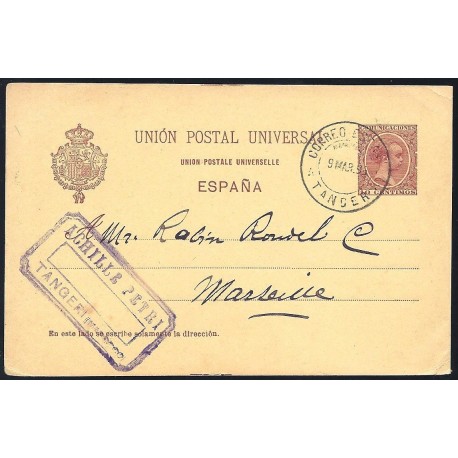 UNIÓN POSTAL UNIVERSAL
UNION POSTALE UNIVERSELLE
ESPAÑA
COMUNICACIONES
10 CENTIMOS
CORREO
9 MAR.
TANGER
Mr. Rabin Rondel C
Marseille
ACHILLE PETRI
TANGER
En este lado se escribe solamente la dirección.